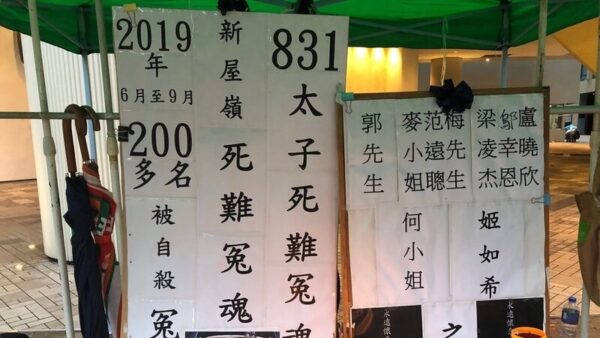 盧曉欣
鄔幸恩
梁凌杰
梅先生
范遠聰
麥小姐
郭先生
姬如希
何小姐
之
永遠懷
永遠懷
831
太子死難冤魂
新屋嶺死難冤魂
2019
年
6月至9月
200
多名
被自殺冤